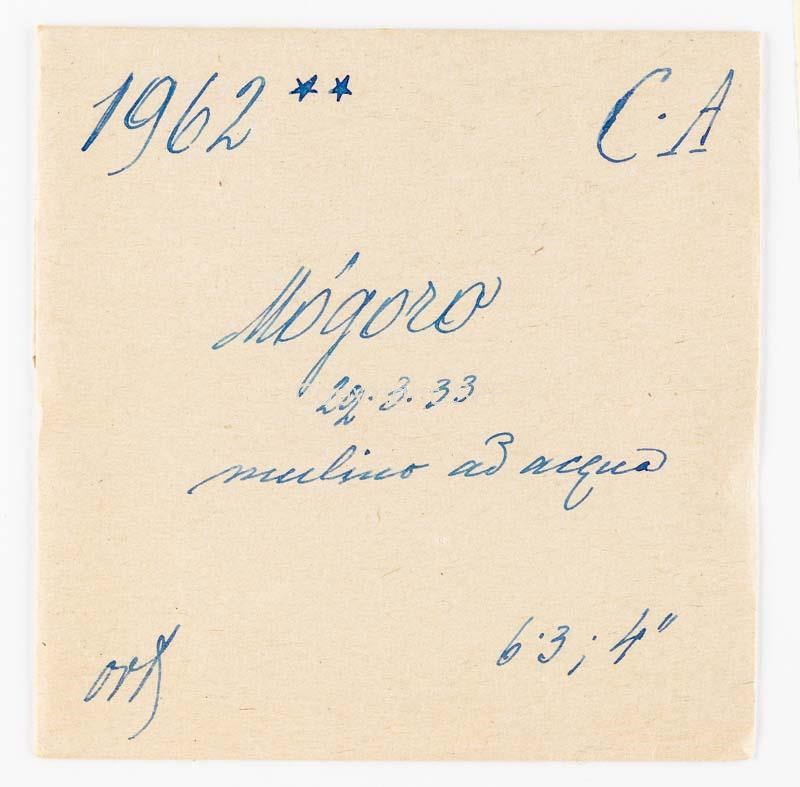 1962 ** C. A
Mógoro
29.3.33
mulino ad acqua
6.3 ; 4"